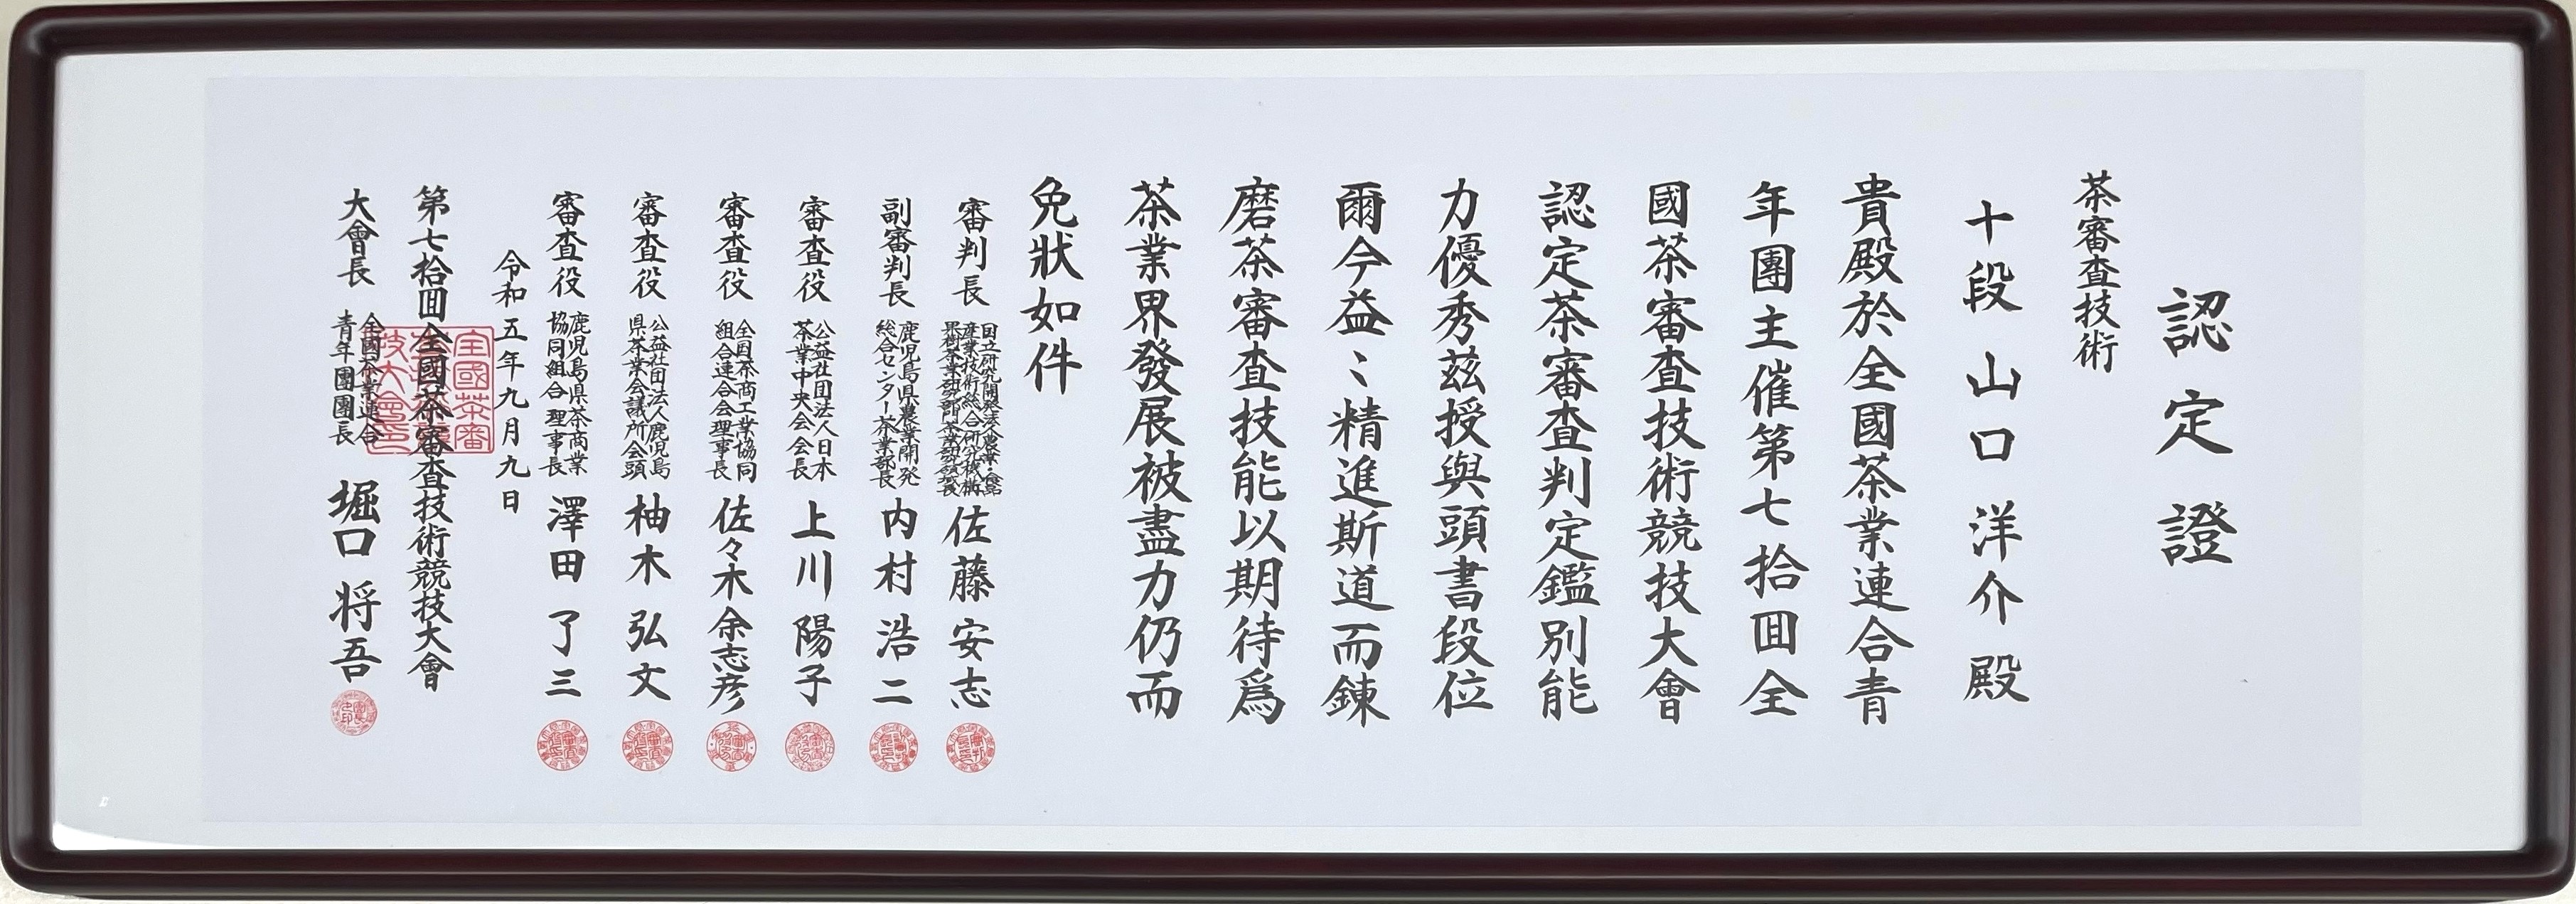 認定證
茶審査技術
十段 山口洋介 殿
貴殿於全國茶業連合青
年團主催第七拾囬全
國茶審査技術競技大會
認定茶審査判定鑑別能
力優秀茲授與頭書段位
爾今益〻精進斯道而錬
磨茶審査技能以期待爲
茶業界發展被盡力仍而
免狀如件
審判長
佐藤安志
副審判長 鹿児島県農業開発
総合センター茶業部長 内村浩二
審査役 公益社団法人日本
茶業中央会会長 上川陽子
審査役 全国茶商工業協同
組合連合会理事長 佐々木余志彦
審査役 公益社団法人鹿児島
県茶業会議所会頭 柚木弘文
審査役 鹿児島県茶商業
協同組合理事長 澤田了三
令和五年九月九日
第七拾囬全國茶審査技術競技大會
大會長 全國茶業連合
青年團團長 堀口将吾